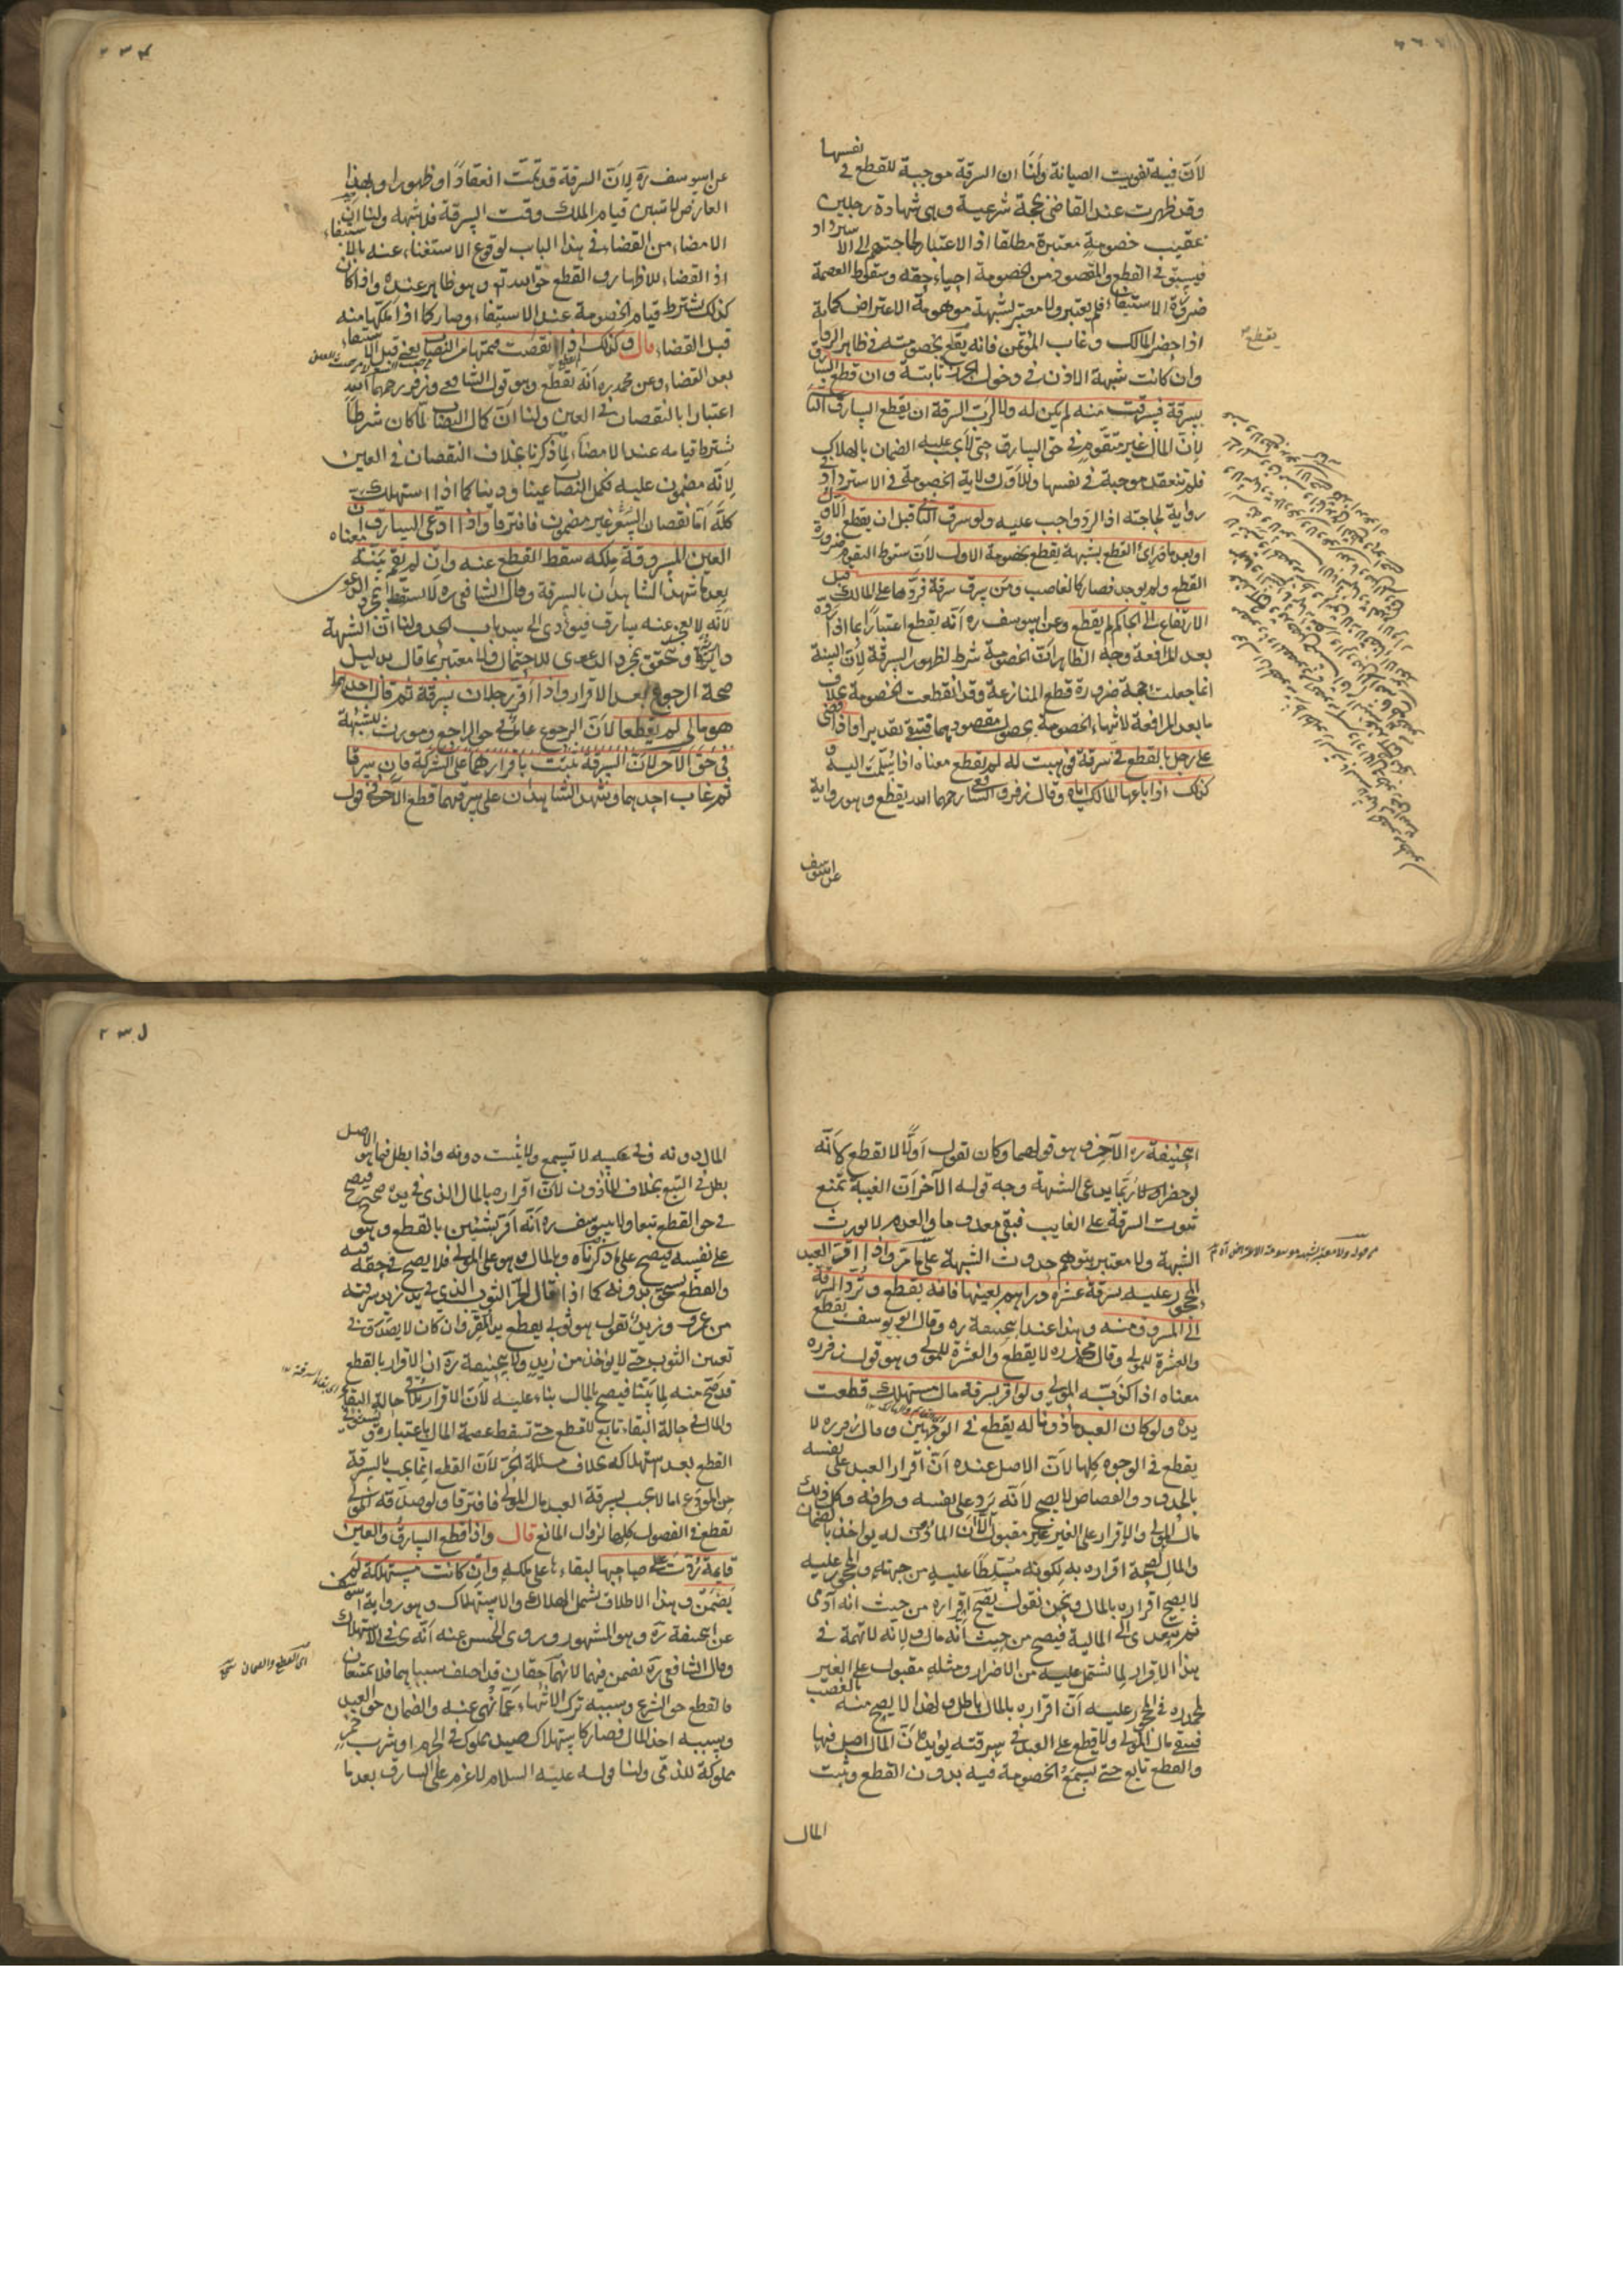 لان فيه تفويت الصيانة ولنا ان السرقة موجبة للقطع في نفسها
وقد ظهرت عند القاضي بحجة شرعية وهي شهادة رجلين
عقيب خصومة معتبرة مطلقا اذ الاعتبار لحاجتهم الى الاسترداد
فيستوفي القطع والمقصود من الخصومة احياء حقه وسقوط العصمة
ضرورة الاستيفاء فلم يعتبر ولا معتبر لشبهة موهومة الاعتراض كما
اذا حضر المالك وغاب المؤتمن فانه يقطع بخصومته في ظاهر الرواية
وان كانت شبهة الاذن في دخول الحرز ثابتة وان قطع السارق
بسرقة فسرقت منه لم يكن له ولا لرب السرقة ان يقطع السارق الثاني
لان المال غير متقوم في حق السارق حتى لا يجب عليه الضمان بالهلاك
فلم تنعقد موجبة في نفسها وللاول ولاية الخصومة في الاسترداد في
رواية لحاجته اذ الرد واجب عليه ولو سرق الثاني قبل ان يقطع الاول
او بعد ما درئ القطع بشبهة يقطع بخصومة الاول لان سقوط التقوم ضرورة
القطع ولم يوجد فصار كالغاصب ومن سرق سرقة فردها على المالك قبل
الارتفاع الى الحاكم لم يقطع وعن ابي يوسف ره انه يقطع اعتبارا بما اذا رده
بعد المرافعة وجه الظاهر ان الخصومة شرط لظهور السرقة لان البينة
انما جعلت حجة ضرورة قطع المنازعة وقد انقطعت الخصومة بخلاف
ما بعد المرافعة لانتهاء الخصومة بحصول مقصودها فتبقى تقديرا واذا قضى
على رجل بالقطع في سرقة فوهبت له لم يقطع معناه اذا سلمت اليه
وكذلك اذا باعها المالك اياه وقال زفر والشافعي رحمهما الله يقطع وهو رواية
عن ابي يوسف
يقطع
عن ابي يوسف ره لان السرقة قد تمت انعقادا وظهورا وبهذا
العارض لا تبين قيام الملك وقت السرقة فلا شبهة ولنا ان
الامضاء من القضاء في هذا الباب لوقوع الاستغناء عنه بالاستيفاء
اذ القضاء للاظهار والقطع حق الله تع وهو ظاهر عنده واذا كان
كذلك يشترط قيام الخصومة عند الاستيفاء وصار كما اذا ملكها منه
قبل القضاء قال وكذلك اذا نقصت قيمتها من النصاب يعني قبل الاستيفاء
بعد القضاء وعن محمد ره انه يقطع وهو قول الشافعي وزفر رحمهما الله
اعتبارا بالنقصان في العين ولنا ان كمال النصاب لما كان شرطا
يشترط قيامه عند الامضاء لما ذكرنا بخلاف النقصان في العين
لانه مضمون عليه فكمل النصاب عينا ودينا كما اذا استهلك
كله اما نقصان السعر غير مضمون فافترقا واذا ادعى السارق ان
العين المسروقة ملكه سقط القطع عنه وان لم يقم بينة معناه
بعد ما شهد الشاهدان بالسرقة وقال الشافعي ره لا يسقط بمجرد الدعوى
لانه لا يعجز عنه سارق فيؤدي الى سد باب الحد ولنا ان الشبهة
دارئة وتتحقق بمجرد الدعوى للاحتمال ولا معتبر بما قال بدليل
صحة الرجوع بعد الاقرار واذا اقر رجلان بسرقة ثم قال احدهما
هو مالي لم يقطعا لان الرجوع عامل في حق الراجع ومورث للشبهة
في حق الآخر لان السرقة تثبت باقرارهما على الشركة فان سرقا
ثم غاب احدهما وشهد الشاهدان على سرقتهما قطع الآخر في قول
ابي حنيفة ره الآخر وهو قولهما وكان يقول اولا لا يقطع لانه
لو حضر ربما يدعي الشبهة وجه قوله الآخر ان الغيبة تمنع
ثبوت السرقة على الغايب فبقي معدوما والعدم لا يورث
الشبهة ولا معتبر بتوهم حدوث الشبهة على ما مر واذا اقر العبد
المحجور عليه بسرقة عشرة دراهم بعينها فانه يقطع وترد السرقة
الى المسروق منه وهذا عند ابي حنيفة ره وقال ابو يوسف يقطع
والعشرة للمولى وقال محمد ره لا يقطع والعشرة للمولى وهو قول زفر ره
معناه اذا كذبه المولى ولو اقر بسرقة مال مستهلك قطعت
يده ولو كان العبد مأذونا له يقطع في الوجهين وقال زفر ره لا
يقطع في الوجوه كلها لان الاصل عنده ان اقرار العبد على نفسه
بالحدود والقصاص لا يصح لانه يرد على نفسه وطرفه وكل ذلك
مال المولى والاقرار على الغير غير مقبول الا ان المأذون له يؤاخذ بالضمان
والمال لصحة اقراره به لكونه مسلطا عليه من جهته والمحجور عليه
لا يصح اقراره بالمال ونحن نقول يصح اقراره من حيث انه آدمي
ثم يتعدى الى المالية فيصح من حيث انه مال ولانه لا تهمة في
هذا الاقرار لما يشتمل عليه من الاضرار ومثله مقبول على الغير
لمحمد ره في المحجور عليه ان اقراره بالمال باطل ولهذا لا يصح منه بالغصب
فيبقى مال المولى ولا قطع على العبد في سرقته يؤيده ان المال اصل فيها
والقطع تابع حتى يسمع الخصومة فيه بدون القطع وثبت
المال
المال دونه وفي عكسه لا تسمع ولا يثبت دونه واذا بطل فيما هو الاصل
بطل في التبع بخلاف المأذون لان اقراره بالمال الذي في يده صحيح فيصح
في حق القطع تبعا ولابي يوسف ره انه اقر بشيئين بالقطع وهو
على نفسه فيصح على ما ذكرناه وبالمال وهو على المولى فلا يصح في حقه فيه
والقطع يستحق بدونه كما اذا قال الحر الثوب الذي في يد زيد سرقته
من عمرو وزيد يقول هو ثوبي يقطع يد المقر وان كان لا يصدق في
تعيين الثوب حتى لا يؤخذ من زيد ولابي حنيفة ره ان الاقرار بالقطع
قد صح منه لما بينا فيصح بالمال بناء عليه لان الاقرار يلاقي حالة البقاء
والمال في حالة البقاء تابع للقطع حتى تسقط عصمة المال باعتباره ويستوفى
القطع بعد استهلاكه بخلاف مسئلة الحر لان القطع انما يجب بالسرقة
من المودع اما لا يجب بسرقة العبد مال المولى فافترقا ولو صدقه المولى
يقطع في الفصول كلها لزوال المانع قال واذا قطع السارق والعين
قائمة ردت على صاحبها لبقائها على ملكه وان كانت مستهلكة لم
يضمن وهذا الاطلاق يشمل الهلاك والاستهلاك وهو رواية ابي يوسف
عن ابي حنيفة ره وهو المشهور وروى الحسن عنه انه يضمن في الاستهلاك
وقال الشافعي ره يضمن فيهما لانهما حقان قد اختلف سبباهما فلا يمتنعان
فالقطع حق الشرع وسببه ترك الانتهاء عما نهي عنه والضمان حق العبد
وسببه اخذ المال فصار كاستهلاك صيد مملوك في الحرم او شرب خمر
مملوكة للذمي ولنا قوله عليه السلام لا غرم على السارق بعد ما
اي القطع والضمان